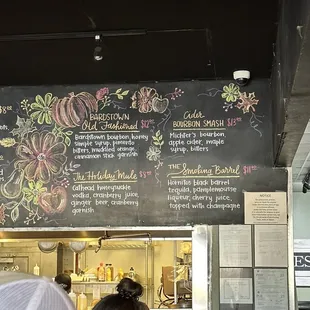 The BARDSTOWN
Old Fashioned $12
Bardstown bourbon, honey
simple syrup, pimento
bitters, muddled orange,
cinnamon stick garnish
The Holiday Mule
Cathead honeysuckle
vodka, cranberry juice,
ginger beer, cranberry
garnish
Cider
BOURBON SMASH $13
Michter's bourbon,
apple cider, maple
syrup, bitters
The Smoking Barrel
black barrel
tequila, pamplemousse
liqueur, cherry
juice, topped with
champagne